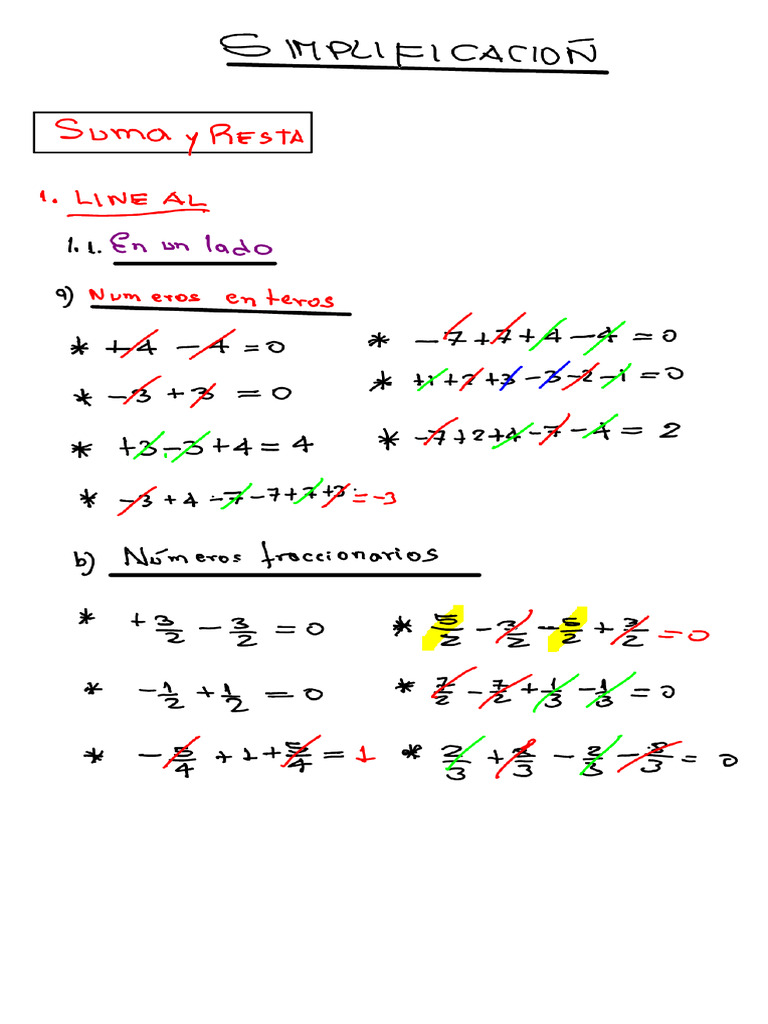 SIMPLIFICACION
Suma y RESTA
1. LINEAL
1.1. En un lado
a) Numeros enteros
* +4 -4 = 0
* -7+7+4-4 = 0
* -3+3 = 0
* +1+2+3-3-2-1 = 0
* +3-3+4 = 4
* -7+2+4-7-4 = 2
* -3+4-7-7+7+3 = -3
b) Números fraccionarios
* +3/2 - 3/2 = 0
* 5/2 - 3/2 - 5/2 + 3/2 = 0
* -1/2 + 1/2 = 0
* 7/2 - 7/2 + 1/3 - 1/3 = 0
* -5/4 + 1 + 5/4 = 1
* 2/3 + 8/3 - 2/3 - 8/3 = 0